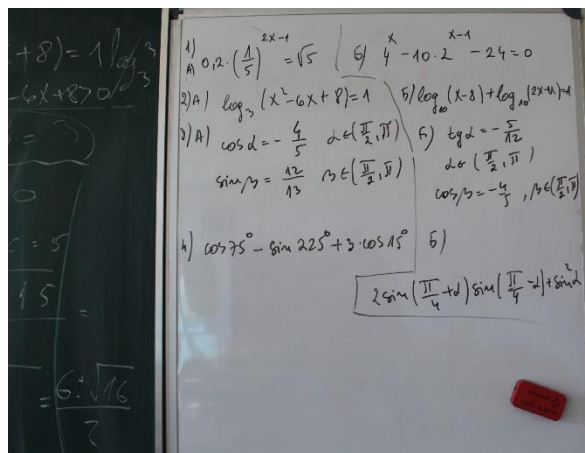 x+8)=1 log₃
-6x+8>0 3
= 3)
0
c = 5
15
=
= (6±√16)/2
1) A) 0,2·(1/5)^(2x-1) = √5
Б) 4^x - 10·2^(x-1) - 24 = 0
2) A) log₃(x²-6x+8)=1
Б) log₁₀(x-8)+log₁₀(2x+11)=1
3) A) cosα = -4/5 α∈(π/2, π)
sinβ = 12/13 β∈(π/2, π)
Б) tgα = -5/12
α∈(π/2, π)
cosβ = -4/5, β∈(π/2, π)
4) cos75° - sin225° + 3·cos15°
Б)
2sin(π/4+α)sin(π/4-α)+sin²α